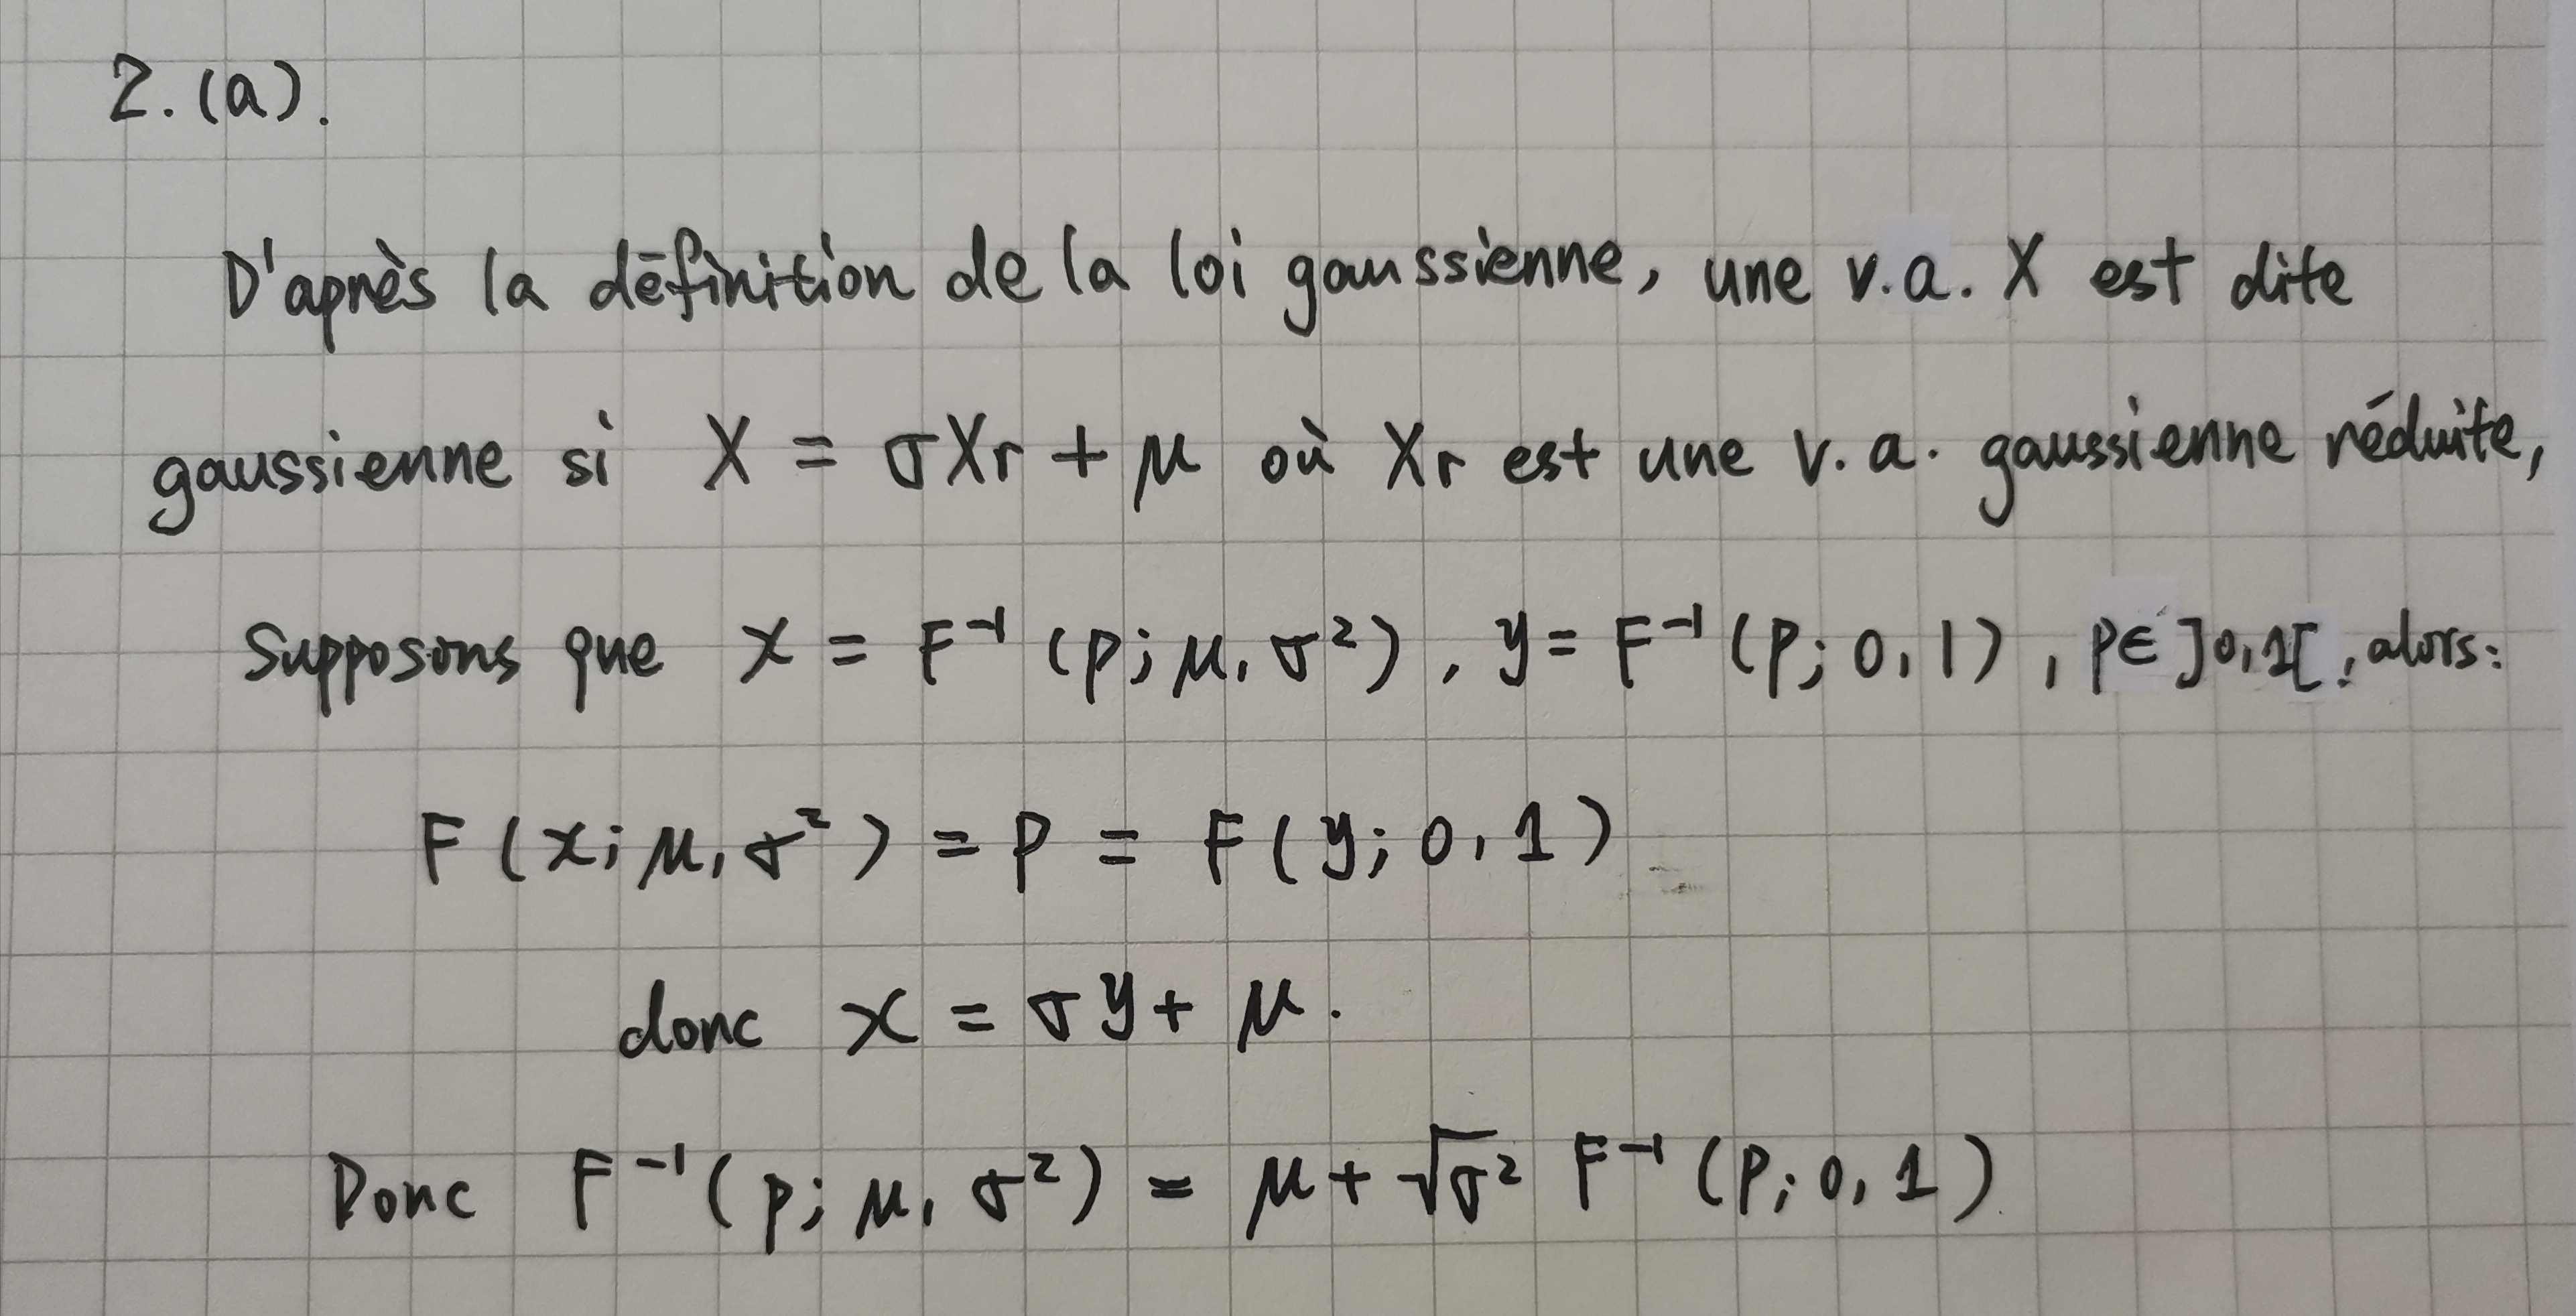 2. (a).
D'après la définition de la loi gaussienne, une v.a. X est dite
gaussienne si X = σXr + μ où Xr est une v.a. gaussienne réduite,
Supposons que x = F⁻¹ (p; μ, σ²), y = F⁻¹ (p; 0, 1), p∈ ]0,1[, alors:
F (x; μ, σ²) = p = F(y; 0, 1)
donc x = σy + μ.
Donc F⁻¹(p; μ, σ²) = μ + √σ² F⁻¹ (p; 0, 1)